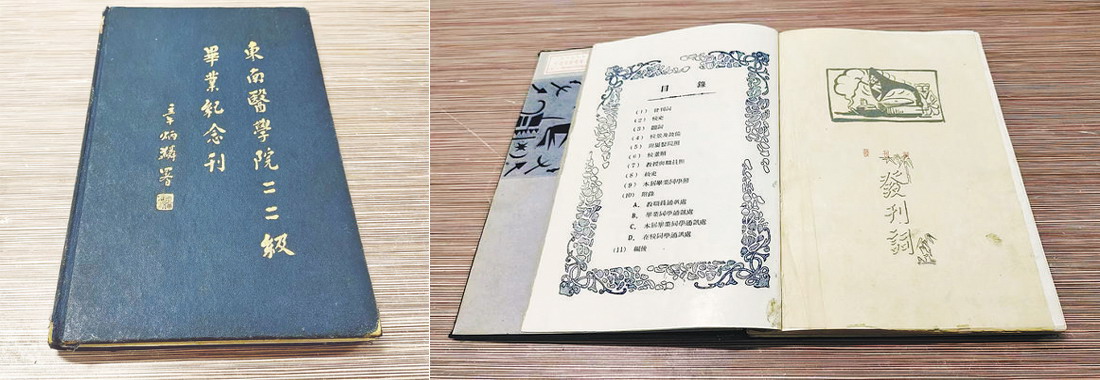 東南醫學院二二級
畢業紀念刊
章炳麟署
目錄
(1) 發刊詞
(2) 校史
(3) 題詞
(4) 校景及設備
(5) 屬醫院
(6) 校董
(7) 教授與職員
(8) 級史
(9) 本屆畢業同學
(10) 附錄
A. 教職員通訊處
B. 畢業同學通訊處
C. 本屆畢業同學通訊處
D. 在校同學通訊處
(11) 編後
發刊詞